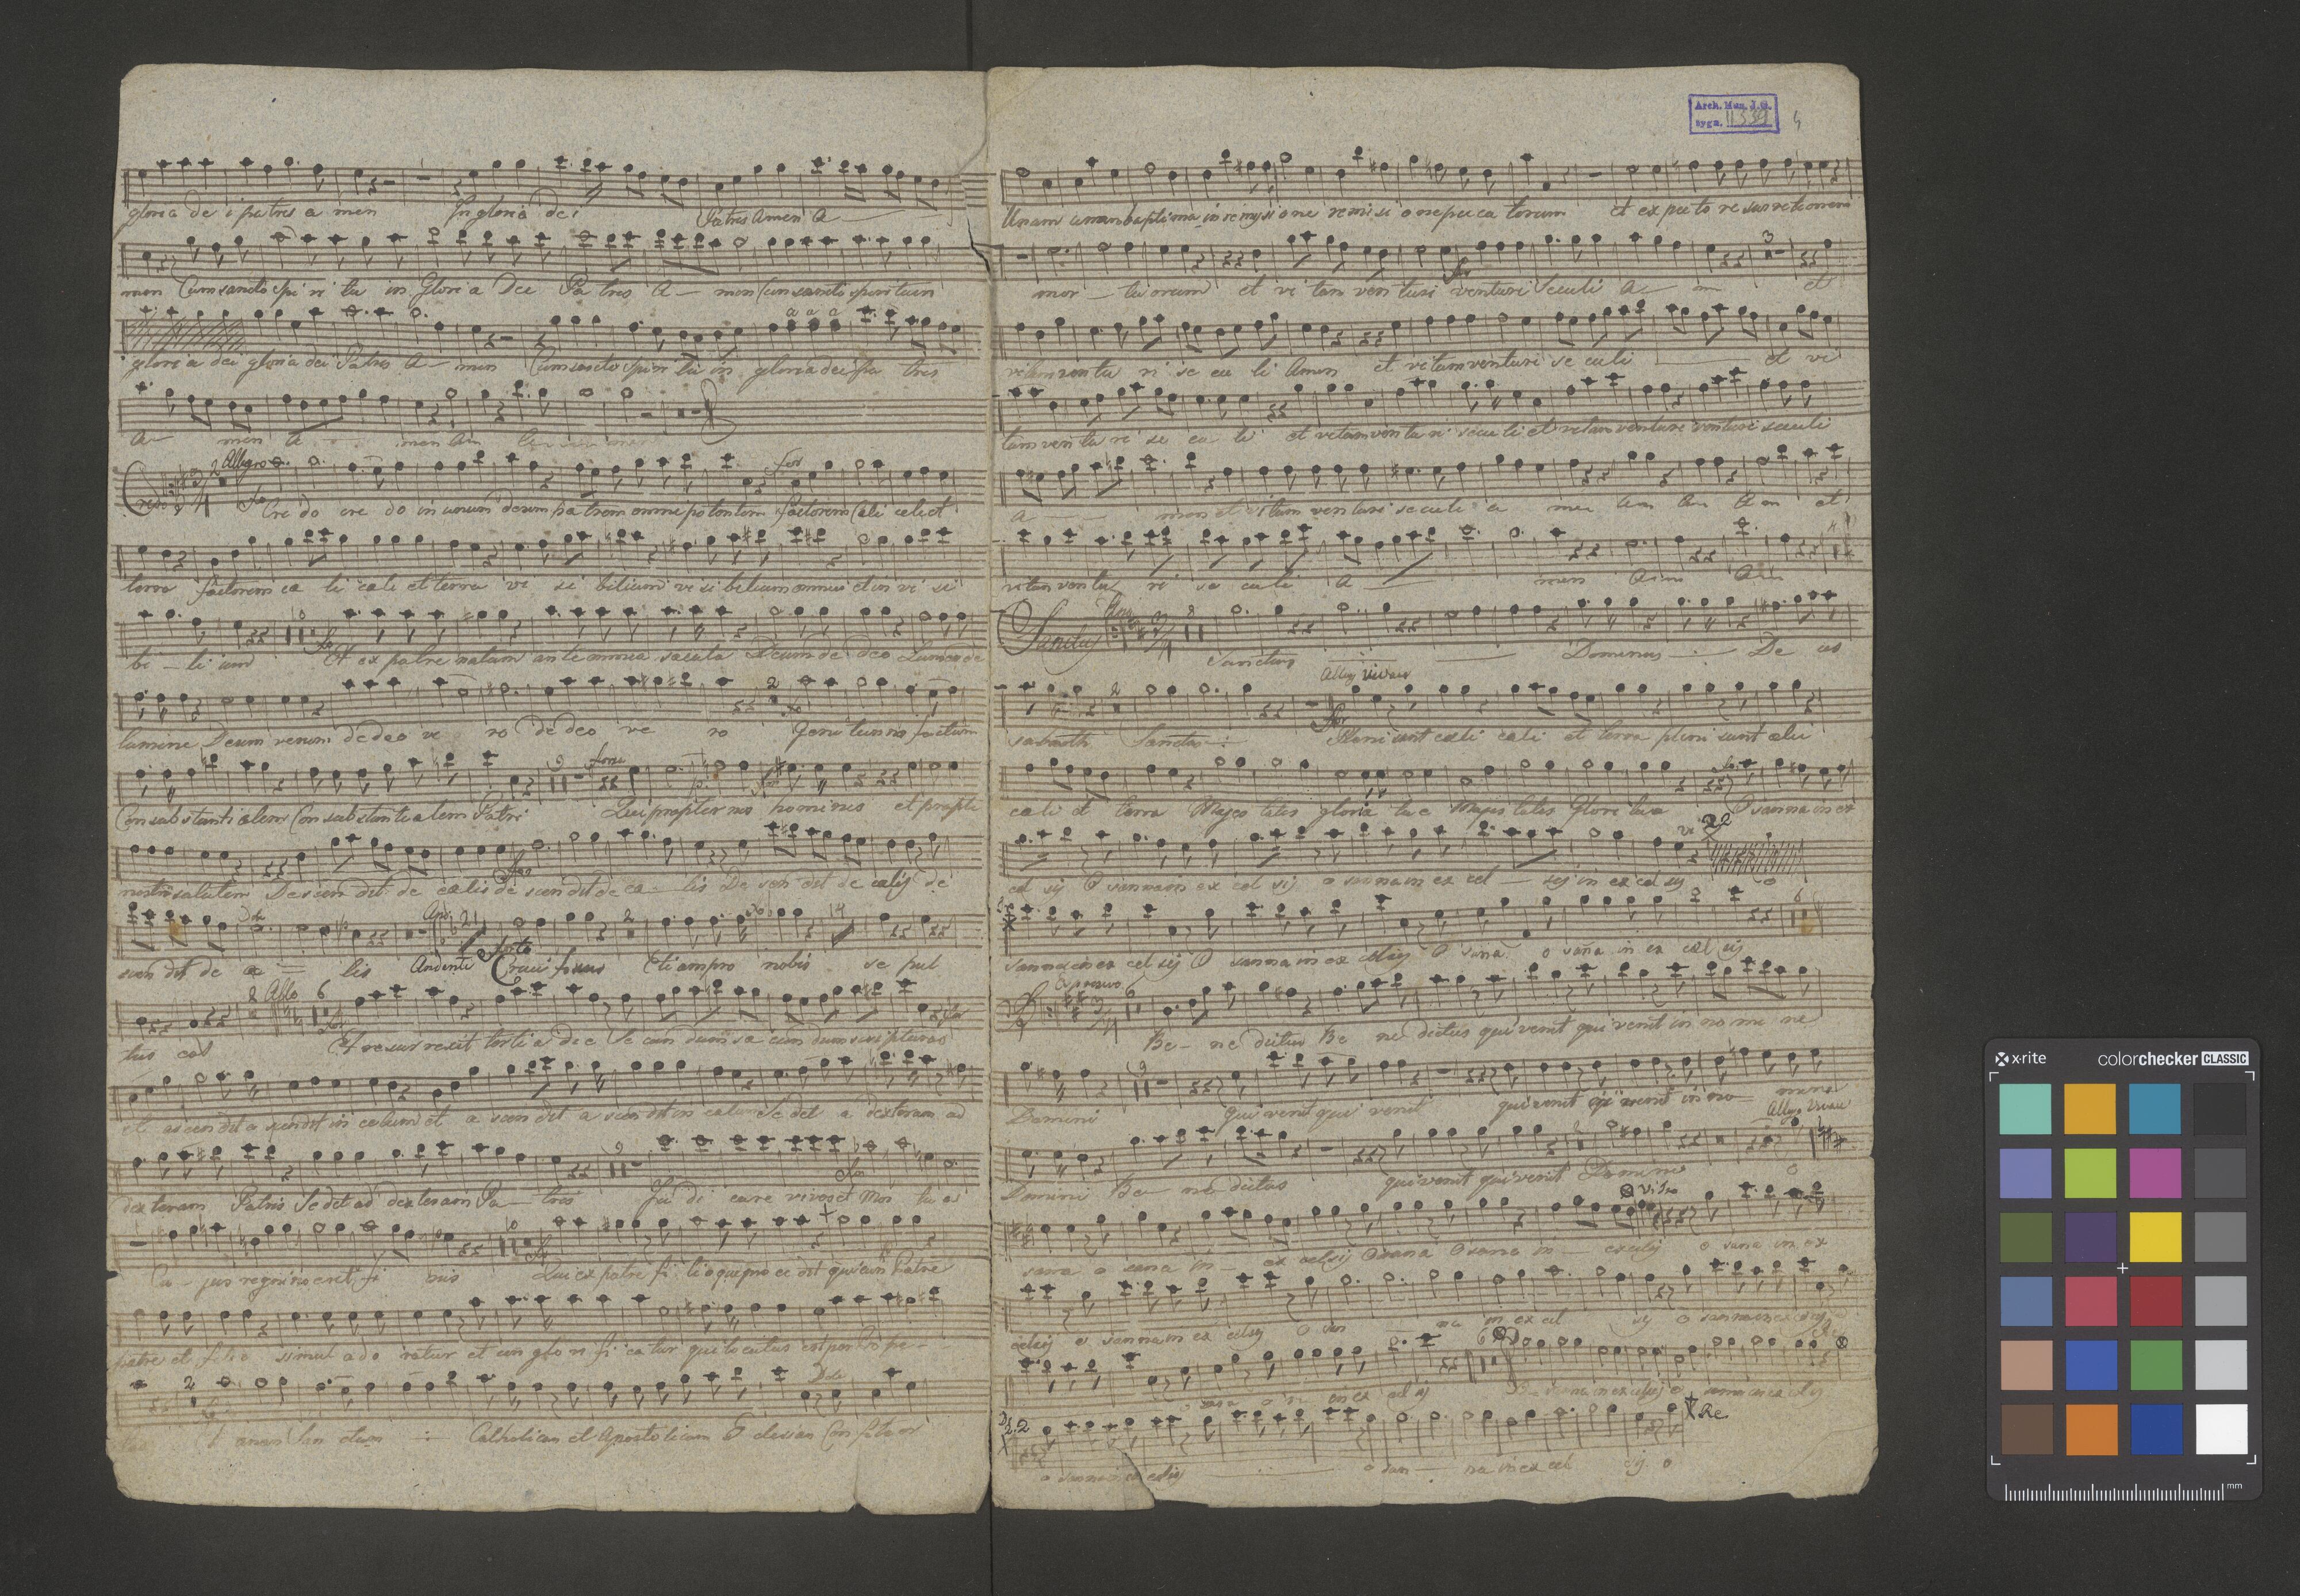 gloria de i patris a men In gloria dei Patris Amen A
men Cum sancto Spi ri tu in Gloria Dei Pa tris A - men Cum sancto spiritu in
gloria dei gloria dei Patris A - men Cum sancto spiri tu in gloria dei pa tris
A - men A men Am
Credo Allegro 2 for
Cre do cre do in unum deum patrem omnipotentem factorem Celi celi et
terra factorem ce li celi et terra vi si bilium vi si bilium omnium et in vi si
bi - li um 10 Et ex patre natum ante omnia secula Deum de deo Lumen de
2
lumine Deum verum de deo ve ro de deo ve ro Genitum no factum
9 forte
Consubstantialem Consubstantialem Patri Qui propter nos homines et propter
nostra salutem Descen dit de celis de scen dit de ce - lis De scen dit de celis de
Dol 21 2 14
scen dit de ce - lis Andante forte Cruci fixus Eti am pro nobis se pul
8 Allo 6
tus est Et resurrexit terti a die Se cun dum se cun dum scripturas
et ascen dit a scendit in celum et a scen dit a scendit in celum Se det a dexteram ad
9
dexteram Patris Sedet ad dexteram Pa - tris Ju di care vivos et Mor tu os
10
Cu - jus regni no erit fi nis Qui ex patre fi lio qui pro ce dit qui cum Patre
patre et filio simul ado ratur et con glo ri fi ca tur qui locutus est per Prophe -
2 Dol
tas Et unam San ctam Catholicam et Apostolicam Eclesiam Confiteor
Arch. Muz. J. G.
sygn. II 339 4
Unam unum baptisma in remysione remisi one pecca torum et expecto resurrectionem
3
mor - tuorum et vi tam ven turi venturi Seculi A - m et
vitam ventu ri se cu li Amen et vitam venturi se culi et vi
tam ven tu ri se cu li et vitam ven tu ri seculi et vitam venturi venturi seculi
a men et vitam venturi seculi a men Am Am Am et
vitam ventu ri se culi A men Am Am
Sanctus 8
Sanctus Dominus De us
2 Allegro vivace
sabaoth Sanctus Pleni sunt celi celi et terra pleni sunt celi
celi et terra Majes tatis gloria tue Majes tatis Glorie tua Osanna in ex
vi 22
cel sij O sanna in ex cel sij o sanna in ex cel - sij in ex cel sij o
6
sanna in ex cel sij O sanna in ex celsij O sana o sana in ex cel sij
6
Be - ne dictus Be ne dictus qui venit qui venit in no mi ne
9
Domini qui venit qui venit qui venit qui venit in no - mine
Allegro Vivace
Domini Be - ne dictus qui venit qui venit Domini o
vi
sana o sana in - ex celsij Osana Osana in - excelsij o sana in ex
celsij o sanna in ex celsij o san na in ex cel sij o sanna in ex celsij
6
o sana in ex celsij
22 Re
o sanna in ex celsij o san - na in ex cel sij o
x-rite colorchecker CLASSIC
mm